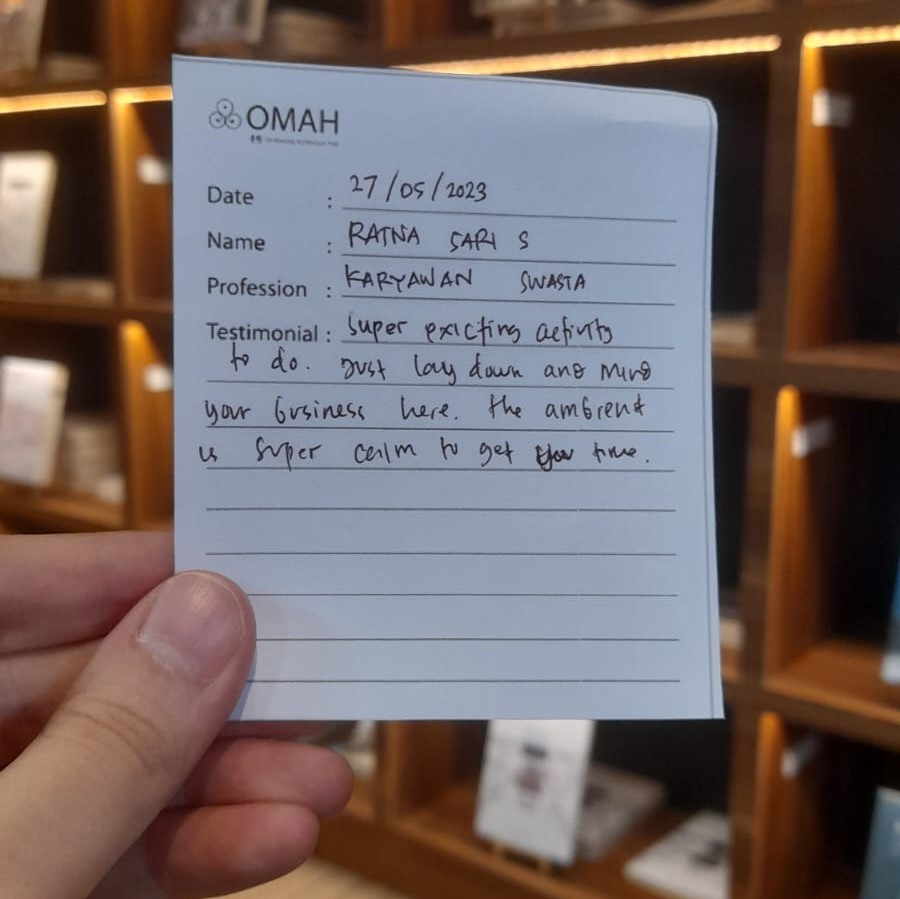 OMAH
Date : 27/05/2023
Name : RATNA SARI S
Profession : KARYAWAN SWASTA
Testimonial : Super exicting activity
to do. Just lay down and mind
your business here. the ambient
is super calm to get you time.